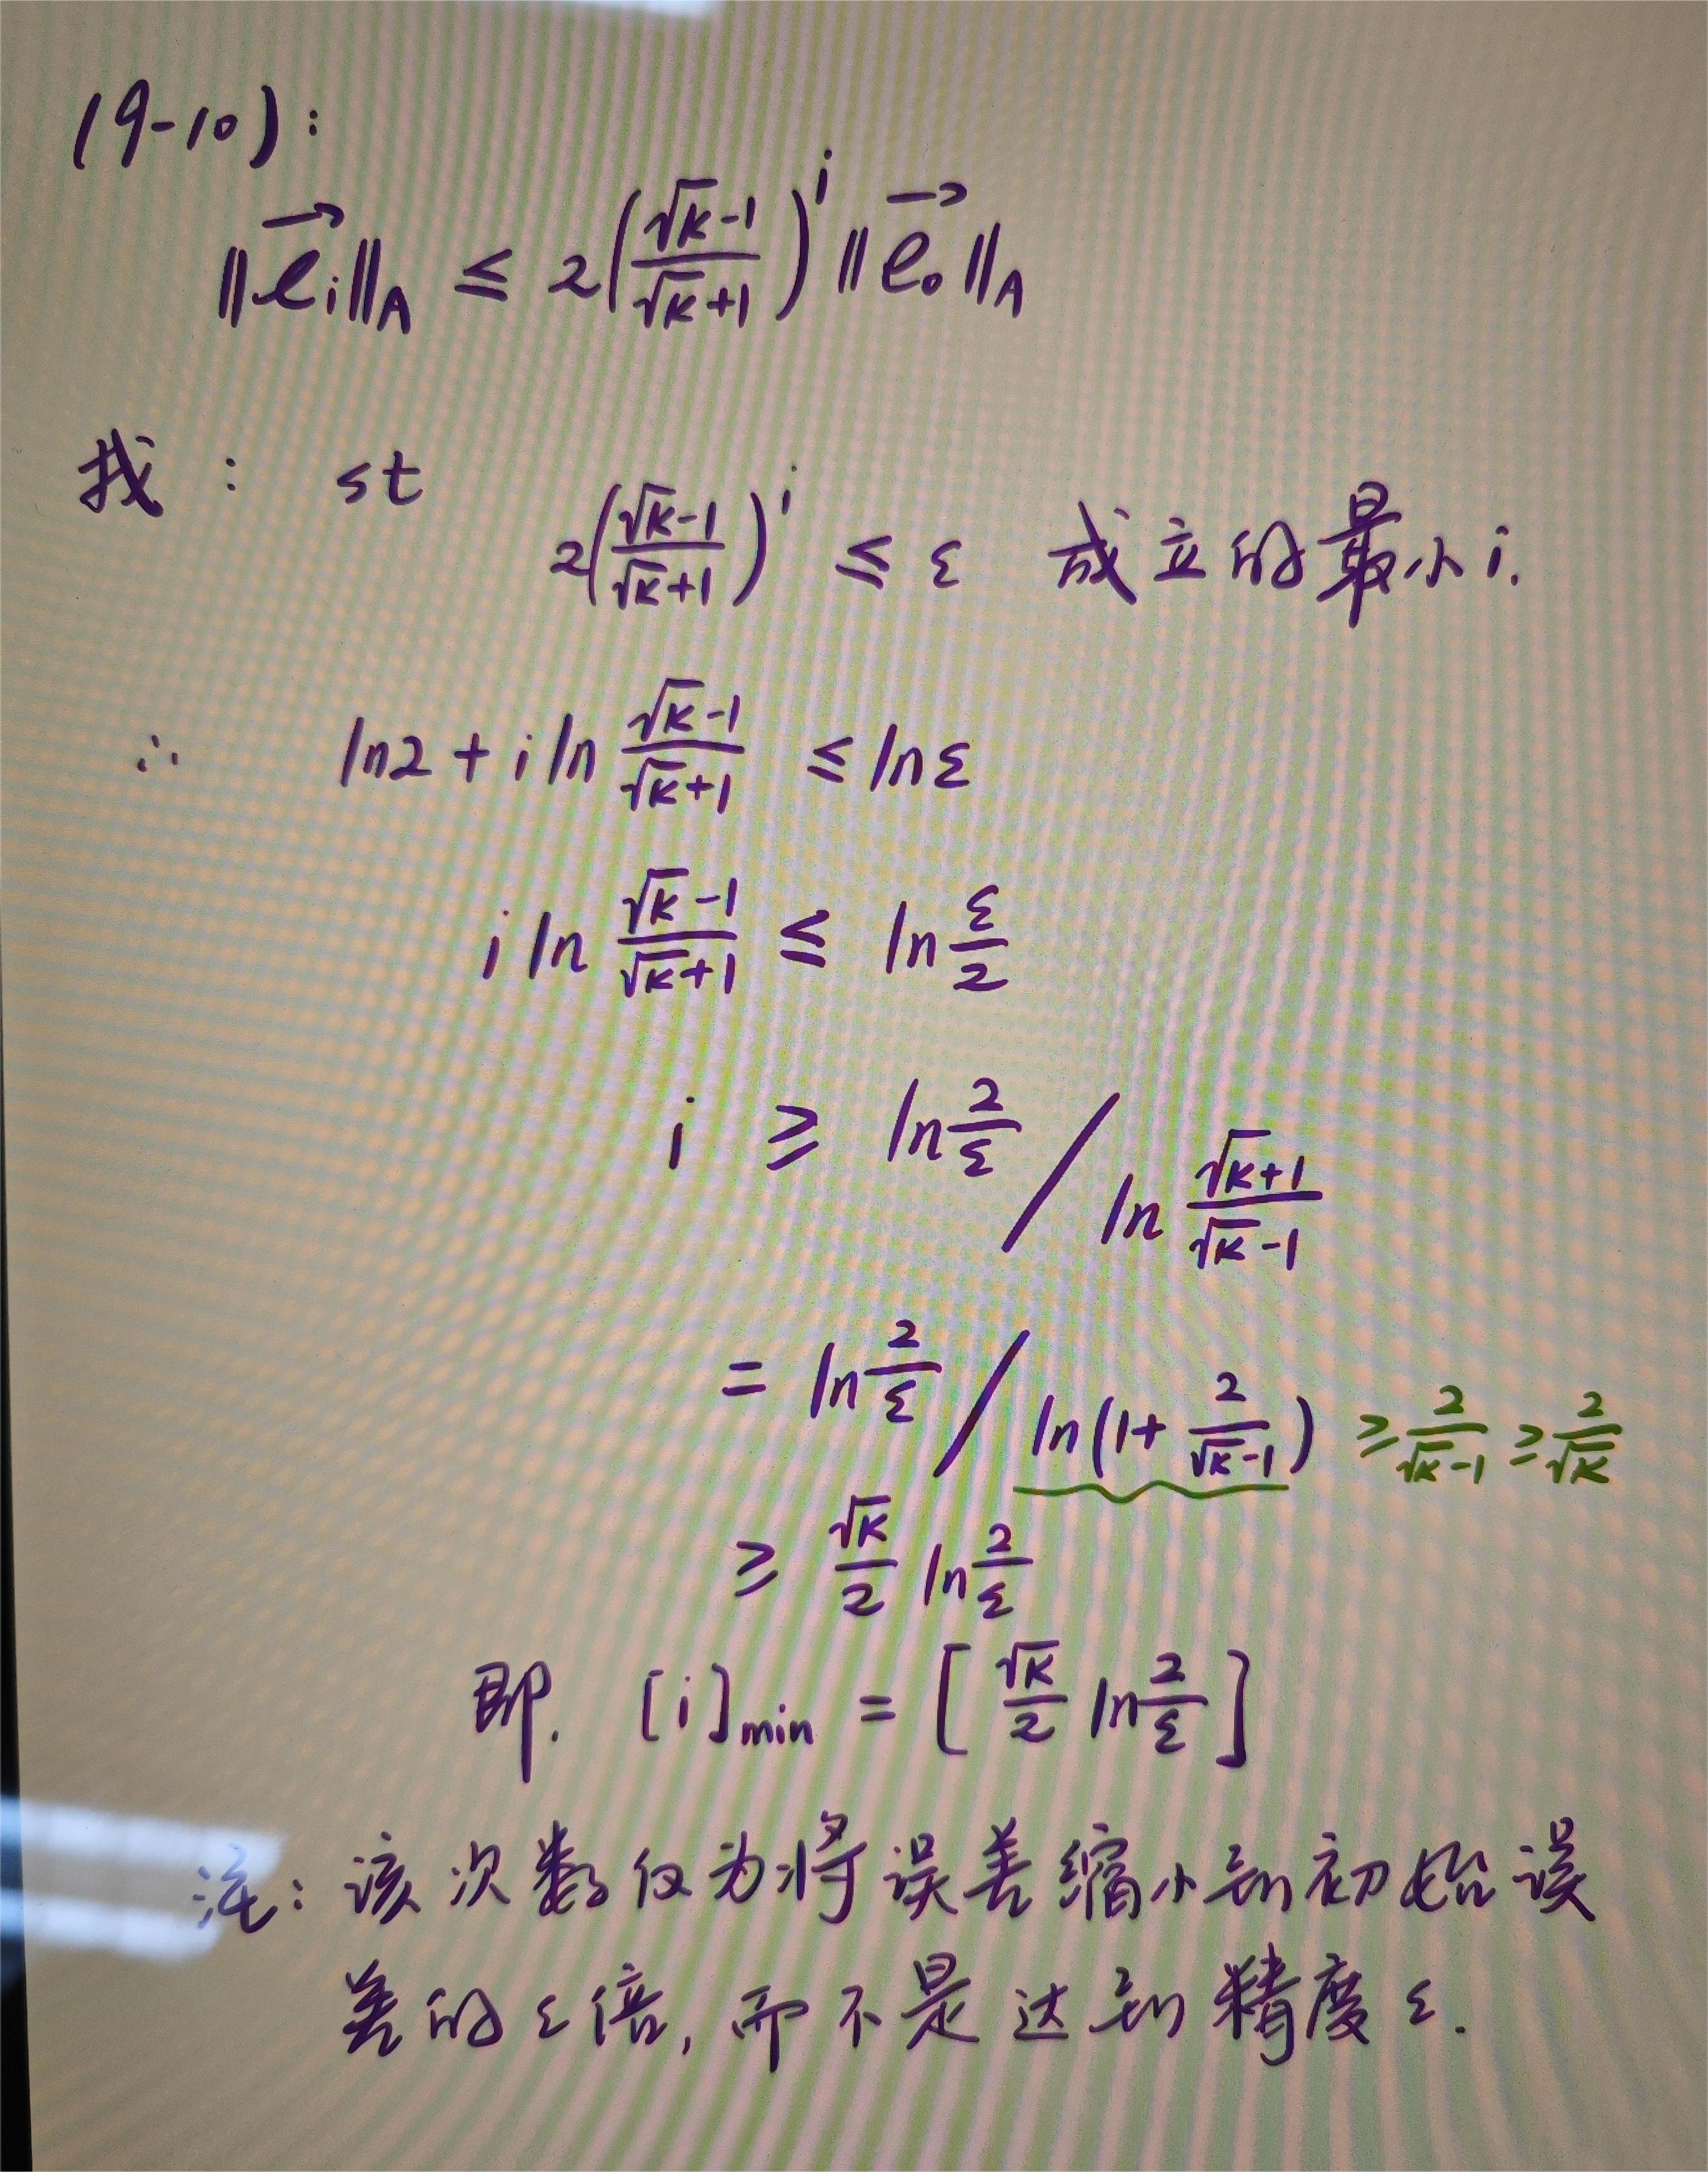 (9-10):
‖e⃗ᵢ‖_A ≤ 2((√κ-1)/(√κ+1))^i ‖e⃗₀‖_A
找: st
2((√κ-1)/(√κ+1))^i ≤ ε 成立的最小 i.
∴ ln2 + i ln (√κ-1)/(√κ+1) ≤ ln ε
i ln (√κ-1)/(√κ+1) ≤ ln ε/2
i ≥ ln 2/ε / ln (√κ+1)/(√κ-1)
= ln 2/ε / ln(1+ 2/(√κ-1)) ≥ 2/(√κ-1) ≥ 2/√κ
≥ √κ/2 ln 2/ε
即. [i]min = [ √κ/2 ln 2/ε ]
注: 该次数仅为将误差缩小到初始误
差的 ε 倍, 而不是达到精度 ε.